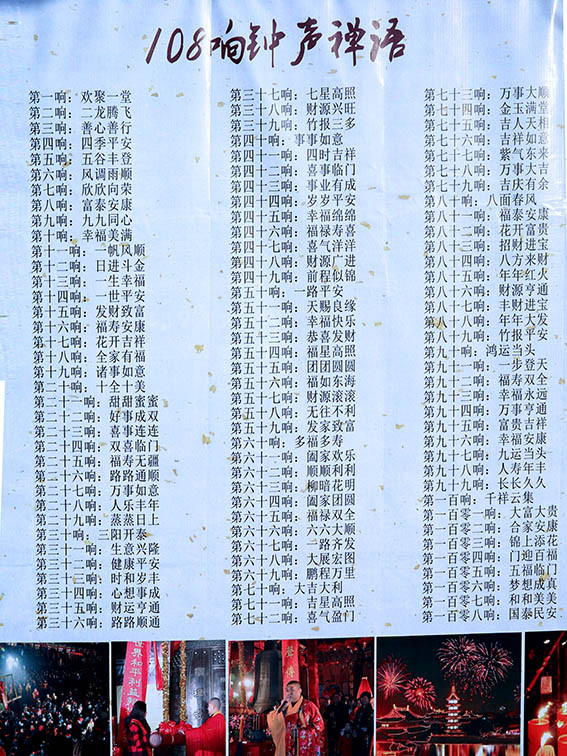 108响钟声禅语
第一响：欢聚一堂
第二响：二龙腾飞
第三响：善心善行
第四响：四季平安
第五响：五谷丰登
第六响：风调雨顺
第七响：欣欣向荣
第八响：富泰安康
第九响：九九同心
第十响：幸福美满
第十一响：一帆风顺
第十二响：日进斗金
第十三响：一生幸福
第十四响：一世平安
第十五响：发财致富
第十六响：福寿安康
第十七响：花开吉祥
第十八响：全家有福
第十九响：诸事如意
第二十响：十全十美
第二十一响：甜甜蜜蜜
第二十二响：好事成双
第二十三响：喜事连连
第二十四响：双喜临门
第二十五响：福寿无疆
第二十六响：路路通顺
第二十七响：万事如意
第二十八响：人乐丰年
第二十九响：蒸蒸日上
第三十响：三阳开泰
第三十一响：生意兴隆
第三十二响：健康平安
第三十三响：时和岁丰
第三十四响：心想事成
第三十五响：财运亨通
第三十六响：路路顺通
第三十七响：七星高照
第三十八响：财源兴旺
第三十九响：竹报三多
第四十响：事事如意
第四十一响：四时吉祥
第四十二响：喜事临门
第四十三响：事业有成
第四十四响：岁岁平安
第四十五响：幸福绵绵
第四十六响：福禄寿喜
第四十七响：喜气洋洋
第四十八响：财源广进
第四十九响：前程似锦
第五十响：一路平安
第五十一响：天赐良缘
第五十二响：幸福快乐
第五十三响：恭喜发财
第五十四响：福星高照
第五十五响：团团圆圆
第五十六响：福如东海
第五十七响：财源滚滚
第五十八响：无往不利
第五十九响：发家致富
第六十响：多福多寿
第六十一响：阖家欢乐
第六十二响：顺顺利利
第六十三响：柳暗花明
第六十四响：阖家团圆
第六十五响：福禄双全
第六十六响：六六大顺
第六十七响：一路齐发
第六十八响：大展宏图
第六十九响：鹏程万里
第七十响：大吉大利
第七十一响：吉星高照
第七十二响：喜气盈门
第七十三响：万事大顺
第七十四响：金玉满堂
第七十五响：吉人天相
第七十六响：吉祥如意
第七十七响：紫气东来
第七十八响：万事大吉
第七十九响：吉庆有余
第八十响：八面春风
第八十一响：福泰安康
第八十二响：花开富贵
第八十三响：招财进宝
第八十四响：八方来财
第八十五响：年年红火
第八十六响：财源亨通
第八十七响：丰财进宝
第八十八响：年年大发
第八十九响：竹报平安
第九十响：鸿运当头
第九十一响：一步登天
第九十二响：福寿双全
第九十三响：幸福永远
第九十四响：万事亨通
第九十五响：富贵吉祥
第九十六响：幸福安康
第九十七响：九运当头
第九十八响：人寿年丰
第九十九响：长长久久
第一百响：千祥云集
第一百零一响：大富大贵
第一百零二响：合家安康
第一百零三响：锦上添花
第一百零四响：门迎百福
第一百零五响：五福临门
第一百零六响：梦想成真
第一百零七响：和和美美
第一百零八响：国泰民安